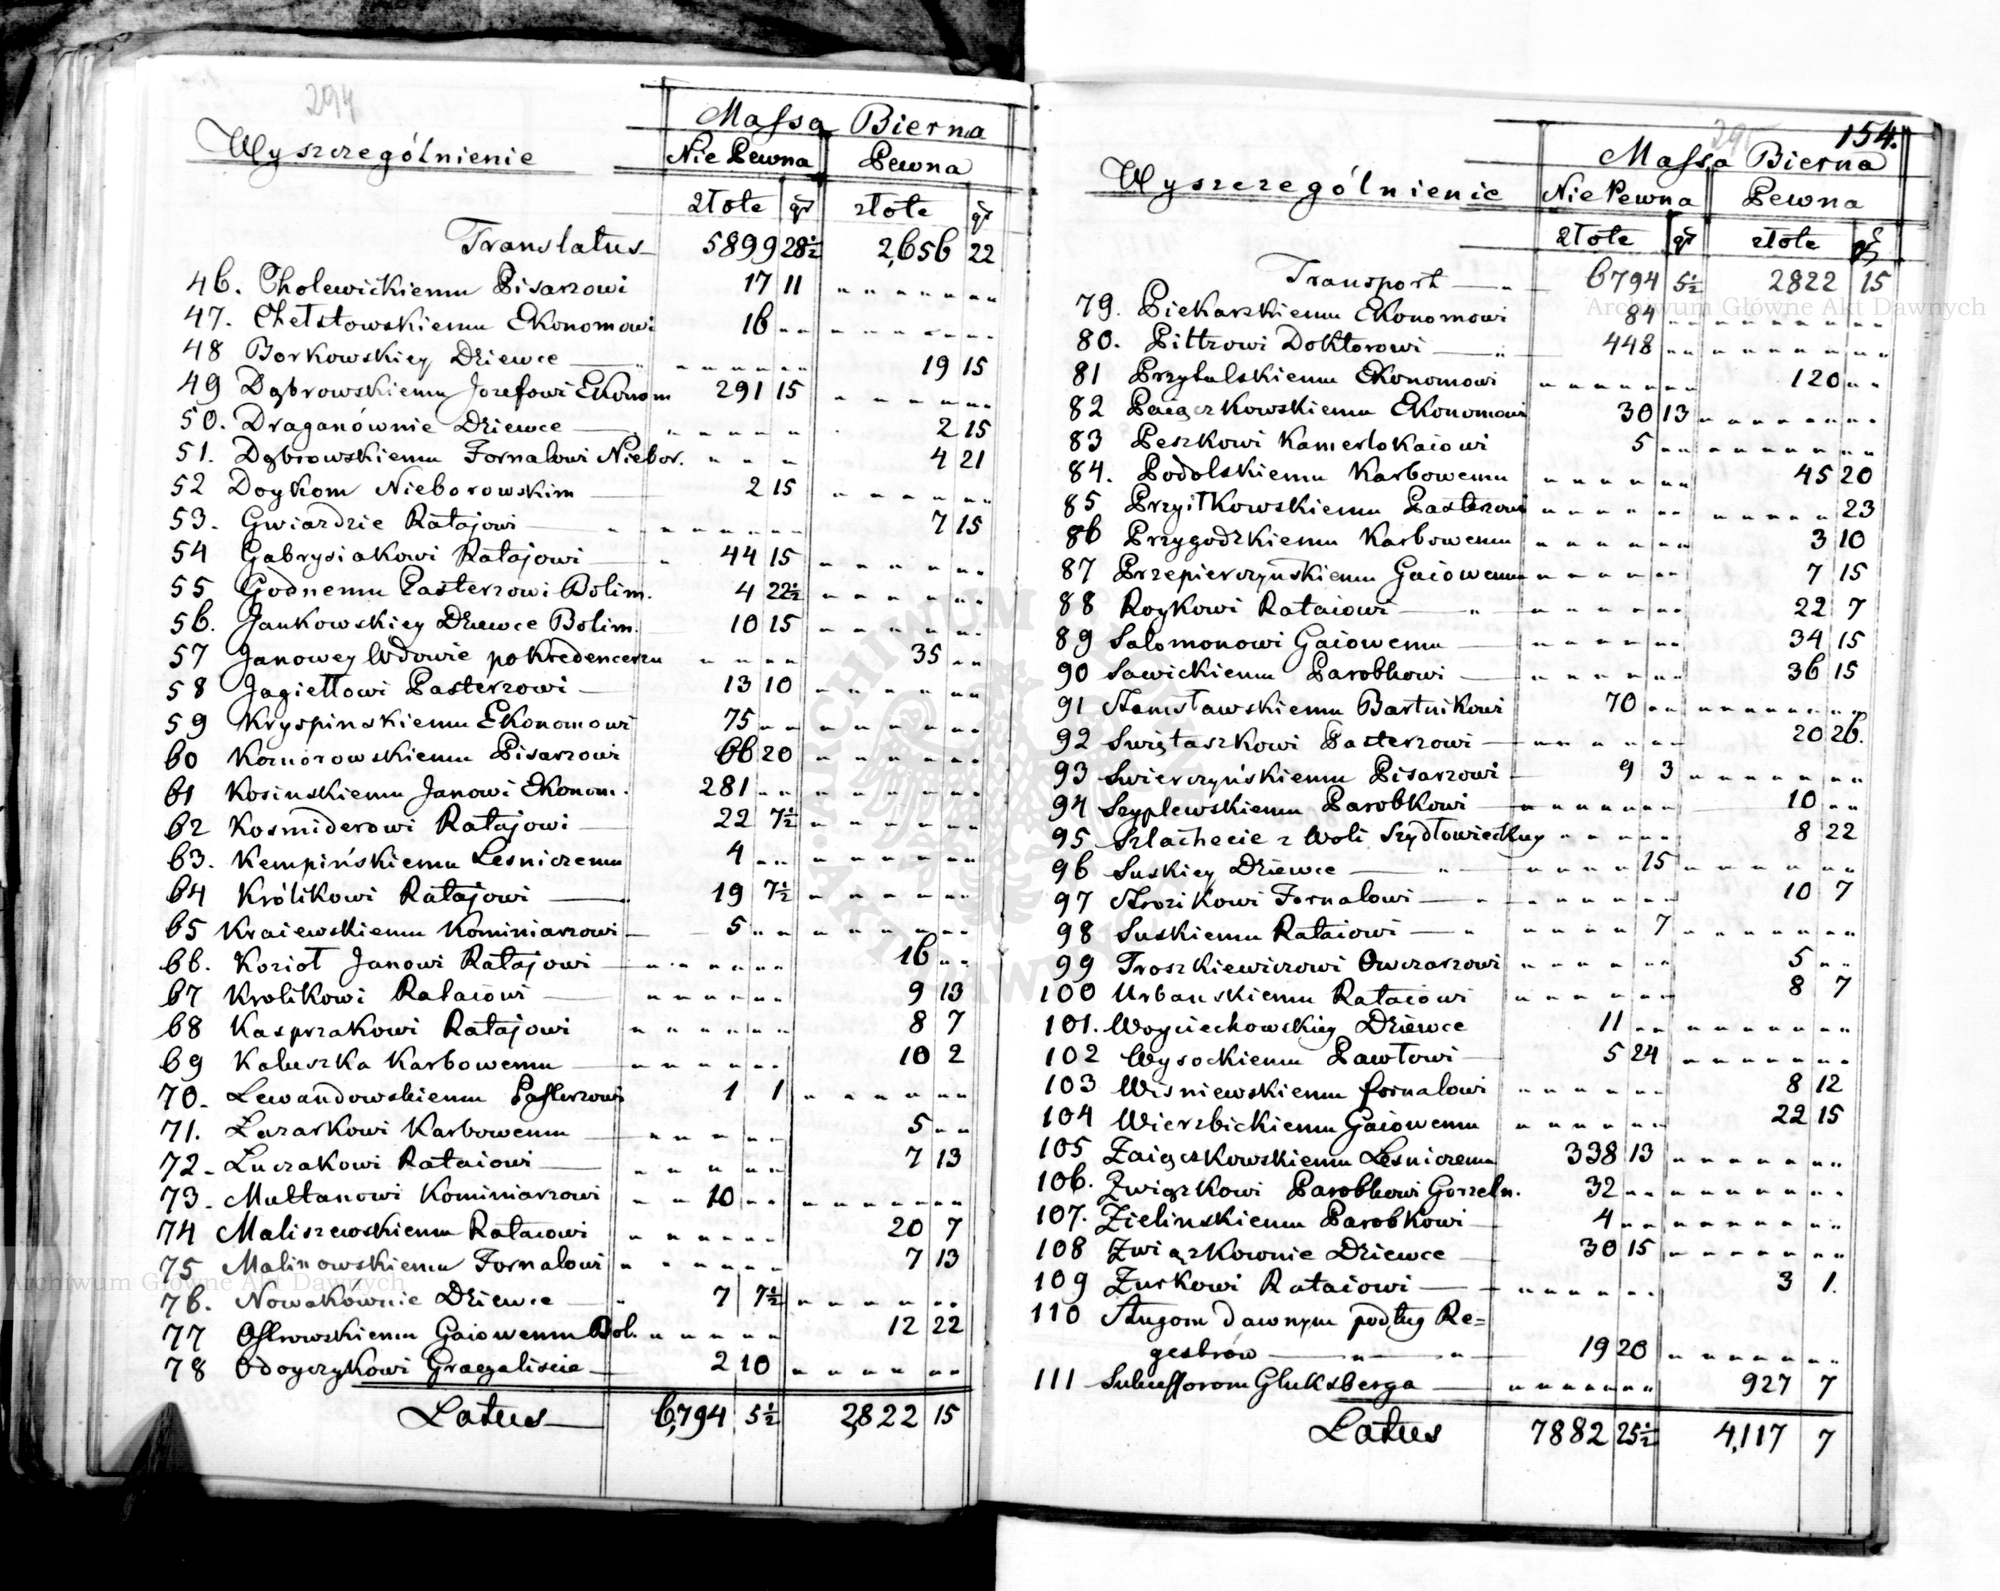 294
Massa Bierna
Wyszczególnienie Nie Pewna Pewna
złote gr złote gr
Translatus 5899 28½ 2,656 22
46. Cholewickiemu Pisarzowi 17 11
47. Chełstowskiemu Ekonomowi 16
48 Borkowskiey Dziewce 19 15
49 Dąbrowskiemu Jozefowi Ekonom 291 15
50. Draganównie Dziewce 2 15
51. Dąbrowskiemu Fornalowi Niebor. 4 21
52 Doykom Nieborowskim 2 15
53. Gwiazdzie Ratajowi 7 15
54 Gabrysiakowi Ratajowi 44 15
55 Godnemu Pasterzowi Bolim. 4 22½
56. Jankowskiey Dziewce Bolim. 10 15
57 Janowey Wdowie po Kredencerzu 35
58 Jagiełłowi Pasterzowi 13 10
59 Kryspinskiemu Ekonomowi 75
60 Komorowskiemu Pisarzowi 66 20
61 Kosinskiemu Janowi Ekonom. 281
62 Kosmiderowi Ratajowi 22 7½
63. Kempińskiemu Lesniczemu 4
64 Królikowi Ratajowi 19 7½
65 Kraiewskiemu Kominiarzowi 5
66. Kozioł Janowi Ratajowi 16
67 Krolikowi Rataiowi 9 13
68 Kasprzakowi Ratajowi 8 7
69 Kaluszka Karbowemu 10 2
70. Lewandowskiemu Pasterzowi 1 1
71. Lazarkowi Karbowemu 5
72. Luczakowi Rataiowi 7 13
73. Multanowi Kominiarzowi 10
74 Maliszewskiemu Rataiowi 20 7
75 Malinowskiemu Fornalowi 7 13
76. Nowakownie Dziewce 7 7½
77 Ostrowskiemu Gaiowemu Bol. 12 22
78 Odoyczykowi Gracyaliscie 2 10
Latus 6,794 5½ 2,822 15
295 154.
Massa Bierna
Wyszczególnienie Nie Pewna Pewna
złote gr złote gr
Transport 6794 5½ 2822 15
79. Piekarskiemu Ekonomowi 84
80. Pittrowi Doktorowi 448
81 Przybulskiemu Ekonomowi 120
82 Paiączkowskiemu Ekonomowi 30 13
83 Peszkowi Kamerlokaiowi 5
84. Podolskiemu Karbowemu 45 20
85 Przyitkowskiemu Pasterzowi 23
86 Przygodzkiemu Karbowemu 3 10
87 Przepierczyńskiemu Gaiowemu 7 15
88 Roykowi Rataiowi 22 7
89 Salomonowi Gaiowemu 34 15
90 Sawickiemu Parobkowi 36 15
91 Stanisławskiemu Bartnikowi 70
92 Swiętaszkowi Pasterzowi 20 26.
93 Swierczyńskiemu Pisarzowi 9 3
94 Szyplewskiemu Parobkowi 10
95 Szlachecie z Woli Szydłowieckiey 8 22
96 Suskiey Dziewce 15
97 Strozikowi Fornalowi 10 7
98 Suskiemu Rataiowi 7
99 Troszkiewiczowi Owczarzowi 5
100 Urbanskiemu Rataiowi 8 7
101. Woyciechowskiey Dziewce 11
102 Wysockiemu Pawłowi 5 24
103 Wisniewskiemu fornalowi 8 12
104 Wierzbickiemu Gaiowemu 22 15
105 Zaiączkowskiemu Lesniczemu 338 13
106. Związkowi Parobkowi Gorzeln. 32
107. Zielinskiemu Parobkowi 4
108 Związkownie Dziewce 30 15
109 Zurkowi Rataiowi 3 1.
110 Sługom dawnym podług Re=
gestrów 19 20
111 Sukcessorom Gluksberga 927 7
Latus 7882 25½ 4,117 7
Archiwum Główne Akt Dawnych
Archiwum Główne Akt Dawnych